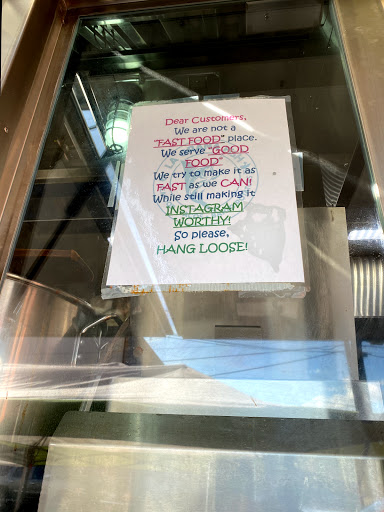 Dear Customers,
We are not a
"FAST FOOD" place.
We serve "GOOD
FOOD"
We try to make it as
FAST as we CAN!
While still making it
INSTAGRAM
WORTHY!
So please,
HANG LOOSE!